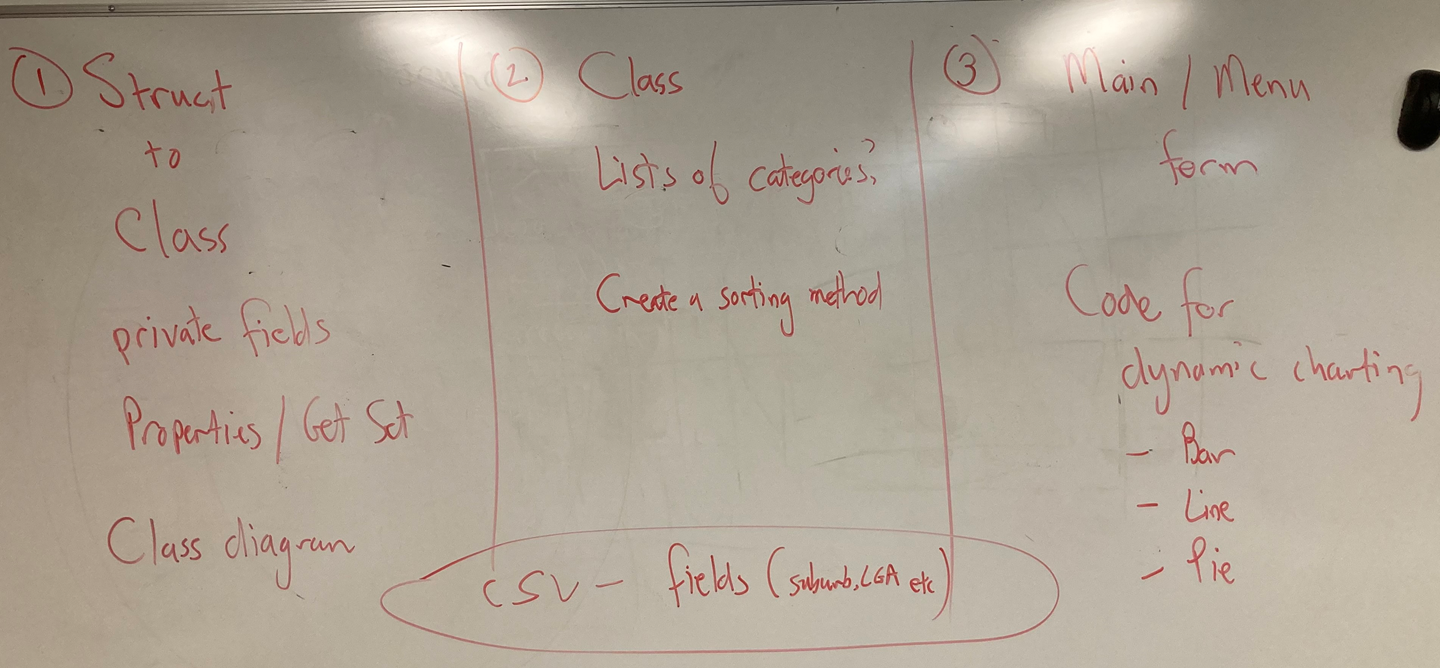 ① Struct
to
Class
private fields
Properties / Get Set
Class diagram
② Class
Lists of categories?
Create a sorting method
③ Main / Menu
form
Code for
dynamic charting
- Bar
- Line
- Pie
CSV - fields (suburb, LGA etc)